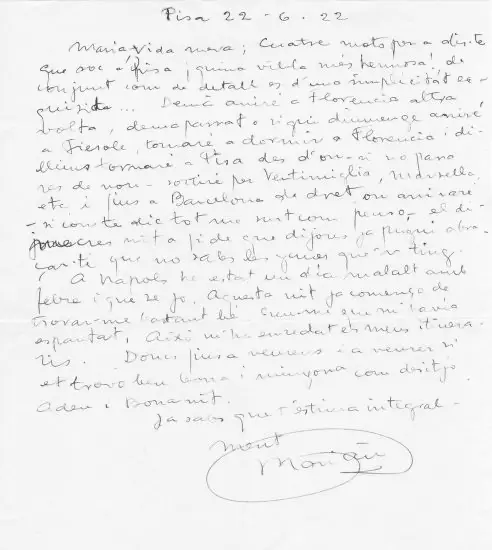 Pisa 22-6.22
Maria vida meva; Cuatre mots per a dir-te
que soc a Pisa ¡quina vila mes hermosa! de
conjunt com de detall es d'una simplicitat ex-
quisida... Demà aniré a Florencia altra
volta, demapassat o sigui diumenge aniré
a Fiesole, tornaré a dormir a Florencia i di-
lluns tornaré a Pisa des d'on si no pasa
res de nou sortiré per Ventimiglia, Marsella,
etc i fins a Barcelona de dret on arrivaré
si conste dic tot me surt com penso, el di-
mecres nit a fi de que dijous ja pugui abra-
çar-ti que no sabs les ganes que'n tinc
A Napols he estat un dia malalt amb
febre i que se jo. Aquesta nit ja començo de
trovar-me bastant bé creu-me que m'havia
espantat, Aixó m'ha enredat els meus itinera-
ris. Doncs fins a veureus i a veurer si
et trovo ben bona i minyona com desitjo
Adeu i Bonanit.
Ja sabs que t'estima integral-
ment
Marián